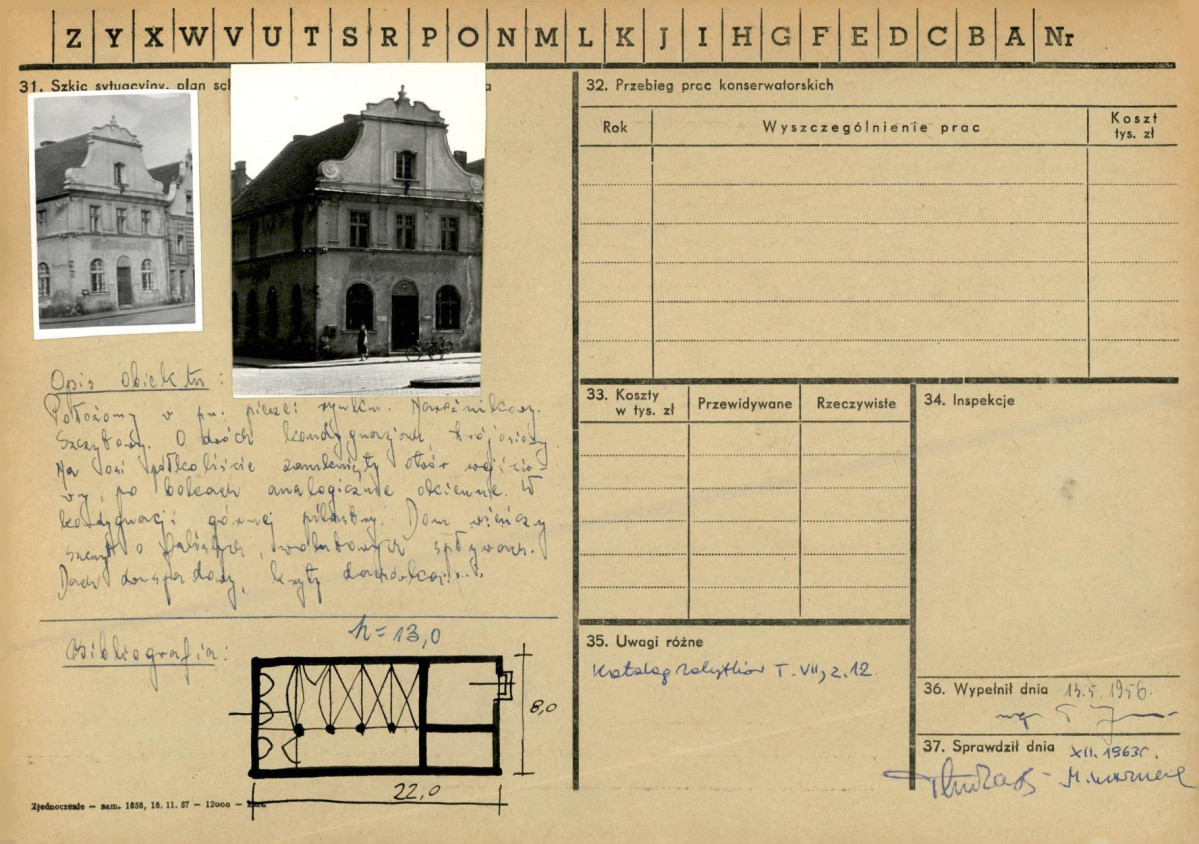 Z Y X W V U T S R P O N M L K J I H G F E D C B A Nr
31. Szkic sytuacyjny, plan
32. Przebieg prac konserwatorskich
Rok
Wyszczególnienie prac
Koszt tys. zł
Opis obiektu:
Położony w pn. pierzei rynku. Narożnikowy.
Szczytowy. O dwóch kondygnacjach, trójosiowy.
Na osi półkoliście zamknięty otwór wejścio-
wy, po bokach analogicznie okienne. W
kondygnacji górnej pilastry. Dom wieńczy
szczyt o falistych, wolutowych spływach.
Dach dwuspadowy, kryty dachówką
Bibliografia:
h = 13,0
8,0
22,0
33. Koszty w tys. zł
Przewidywane
Rzeczywiste
34. Inspekcje
35. Uwagi różne
Katalog zabytków T. VII, z. 12.
36. Wypełnił dnia 15.5.1958.
mgr
37. Sprawdził dnia XII. 1963r.
Zjednoczenie — zam. 1858, 16. 11. 57 — 12000 —